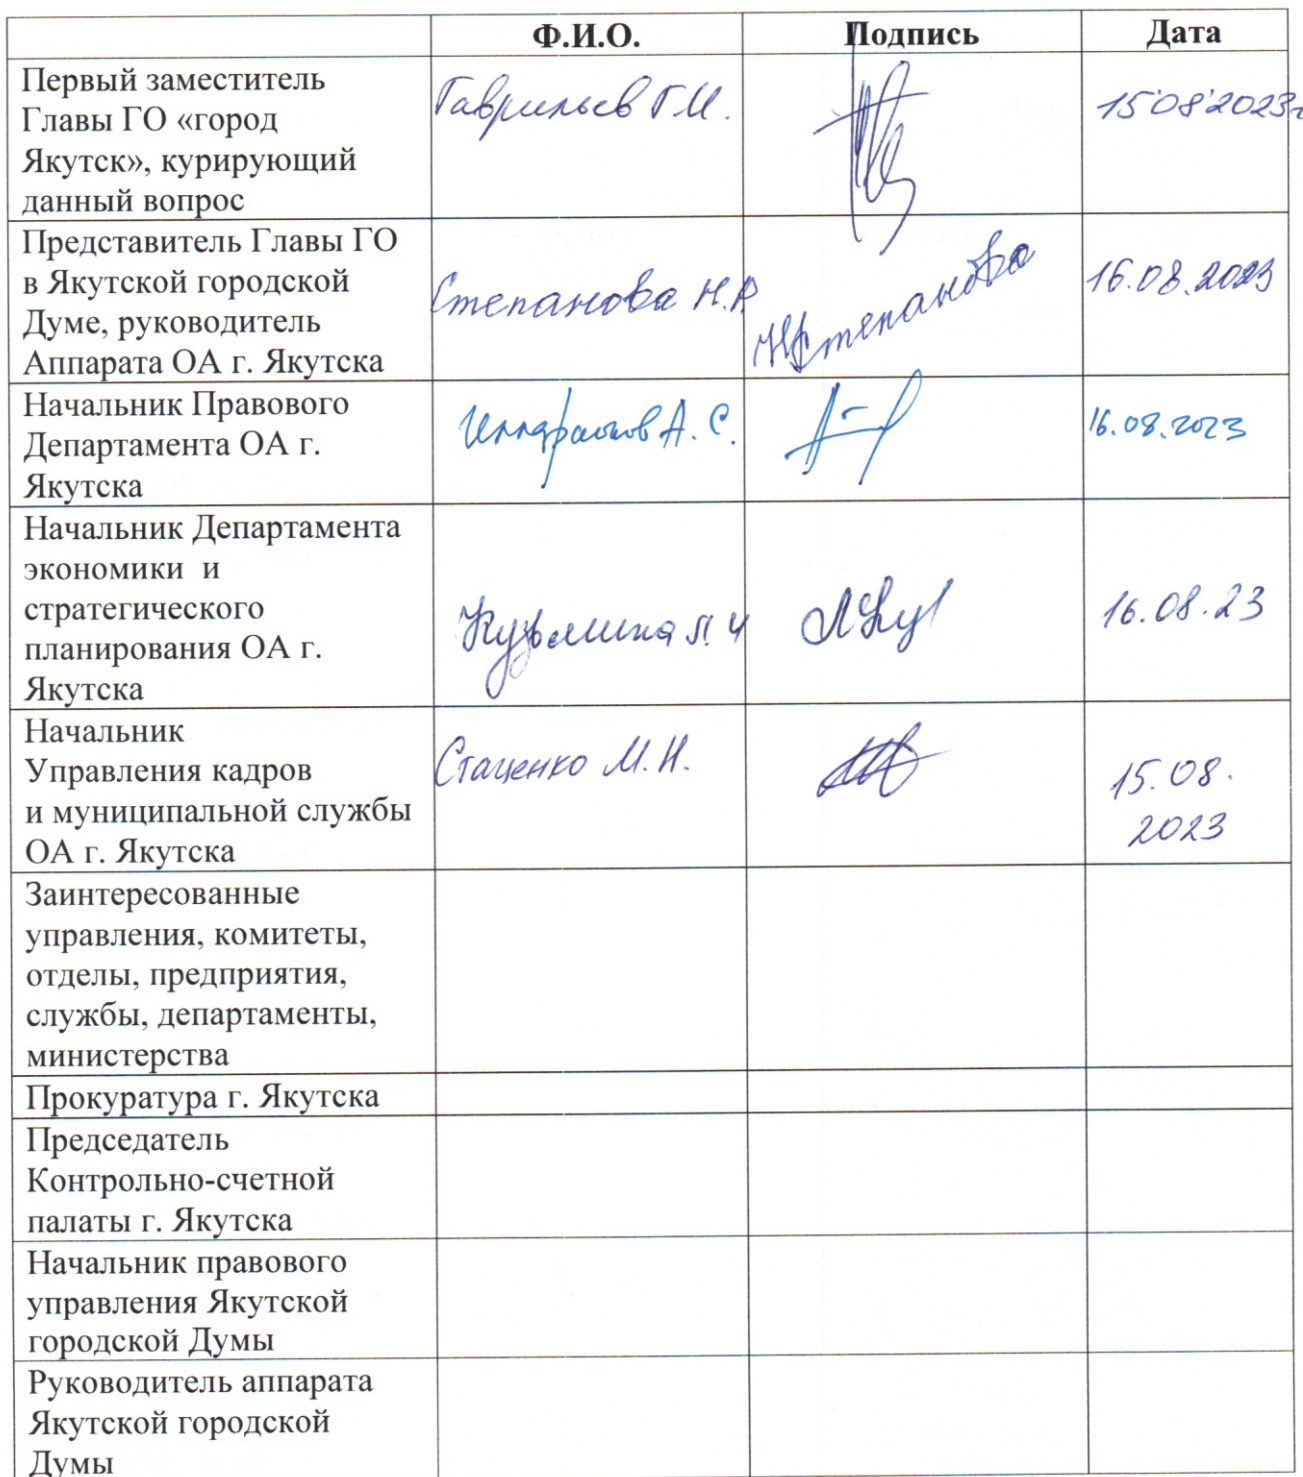 Ф.И.О. Подпись Дата
Первый заместитель
Главы ГО «город
Якутск», курирующий
данный вопрос
Гаврильев Г.И.
15.08.2023г
Представитель Главы ГО
в Якутской городской
Думе, руководитель
Аппарата ОА г. Якутска
Степанова Н.Р
Степанова
16.08.2023
Начальник Правового
Департамента ОА г.
Якутска
Илларионов А. С.
16.08.2023
Начальник Департамента
экономики и
стратегического
планирования ОА г.
Якутска
Кузьмина Л. И
16.08.23
Начальник
Управления кадров
и муниципальной службы
ОА г. Якутска
Стаценко М. Н.
15.08.
2023
Заинтересованные
управления, комитеты,
отделы, предприятия,
службы, департаменты,
министерства
Прокуратура г. Якутска
Председатель
Контрольно-счетной
палаты г. Якутска
Начальник правового
управления Якутской
городской Думы
Руководитель аппарата
Якутской городской
Думы